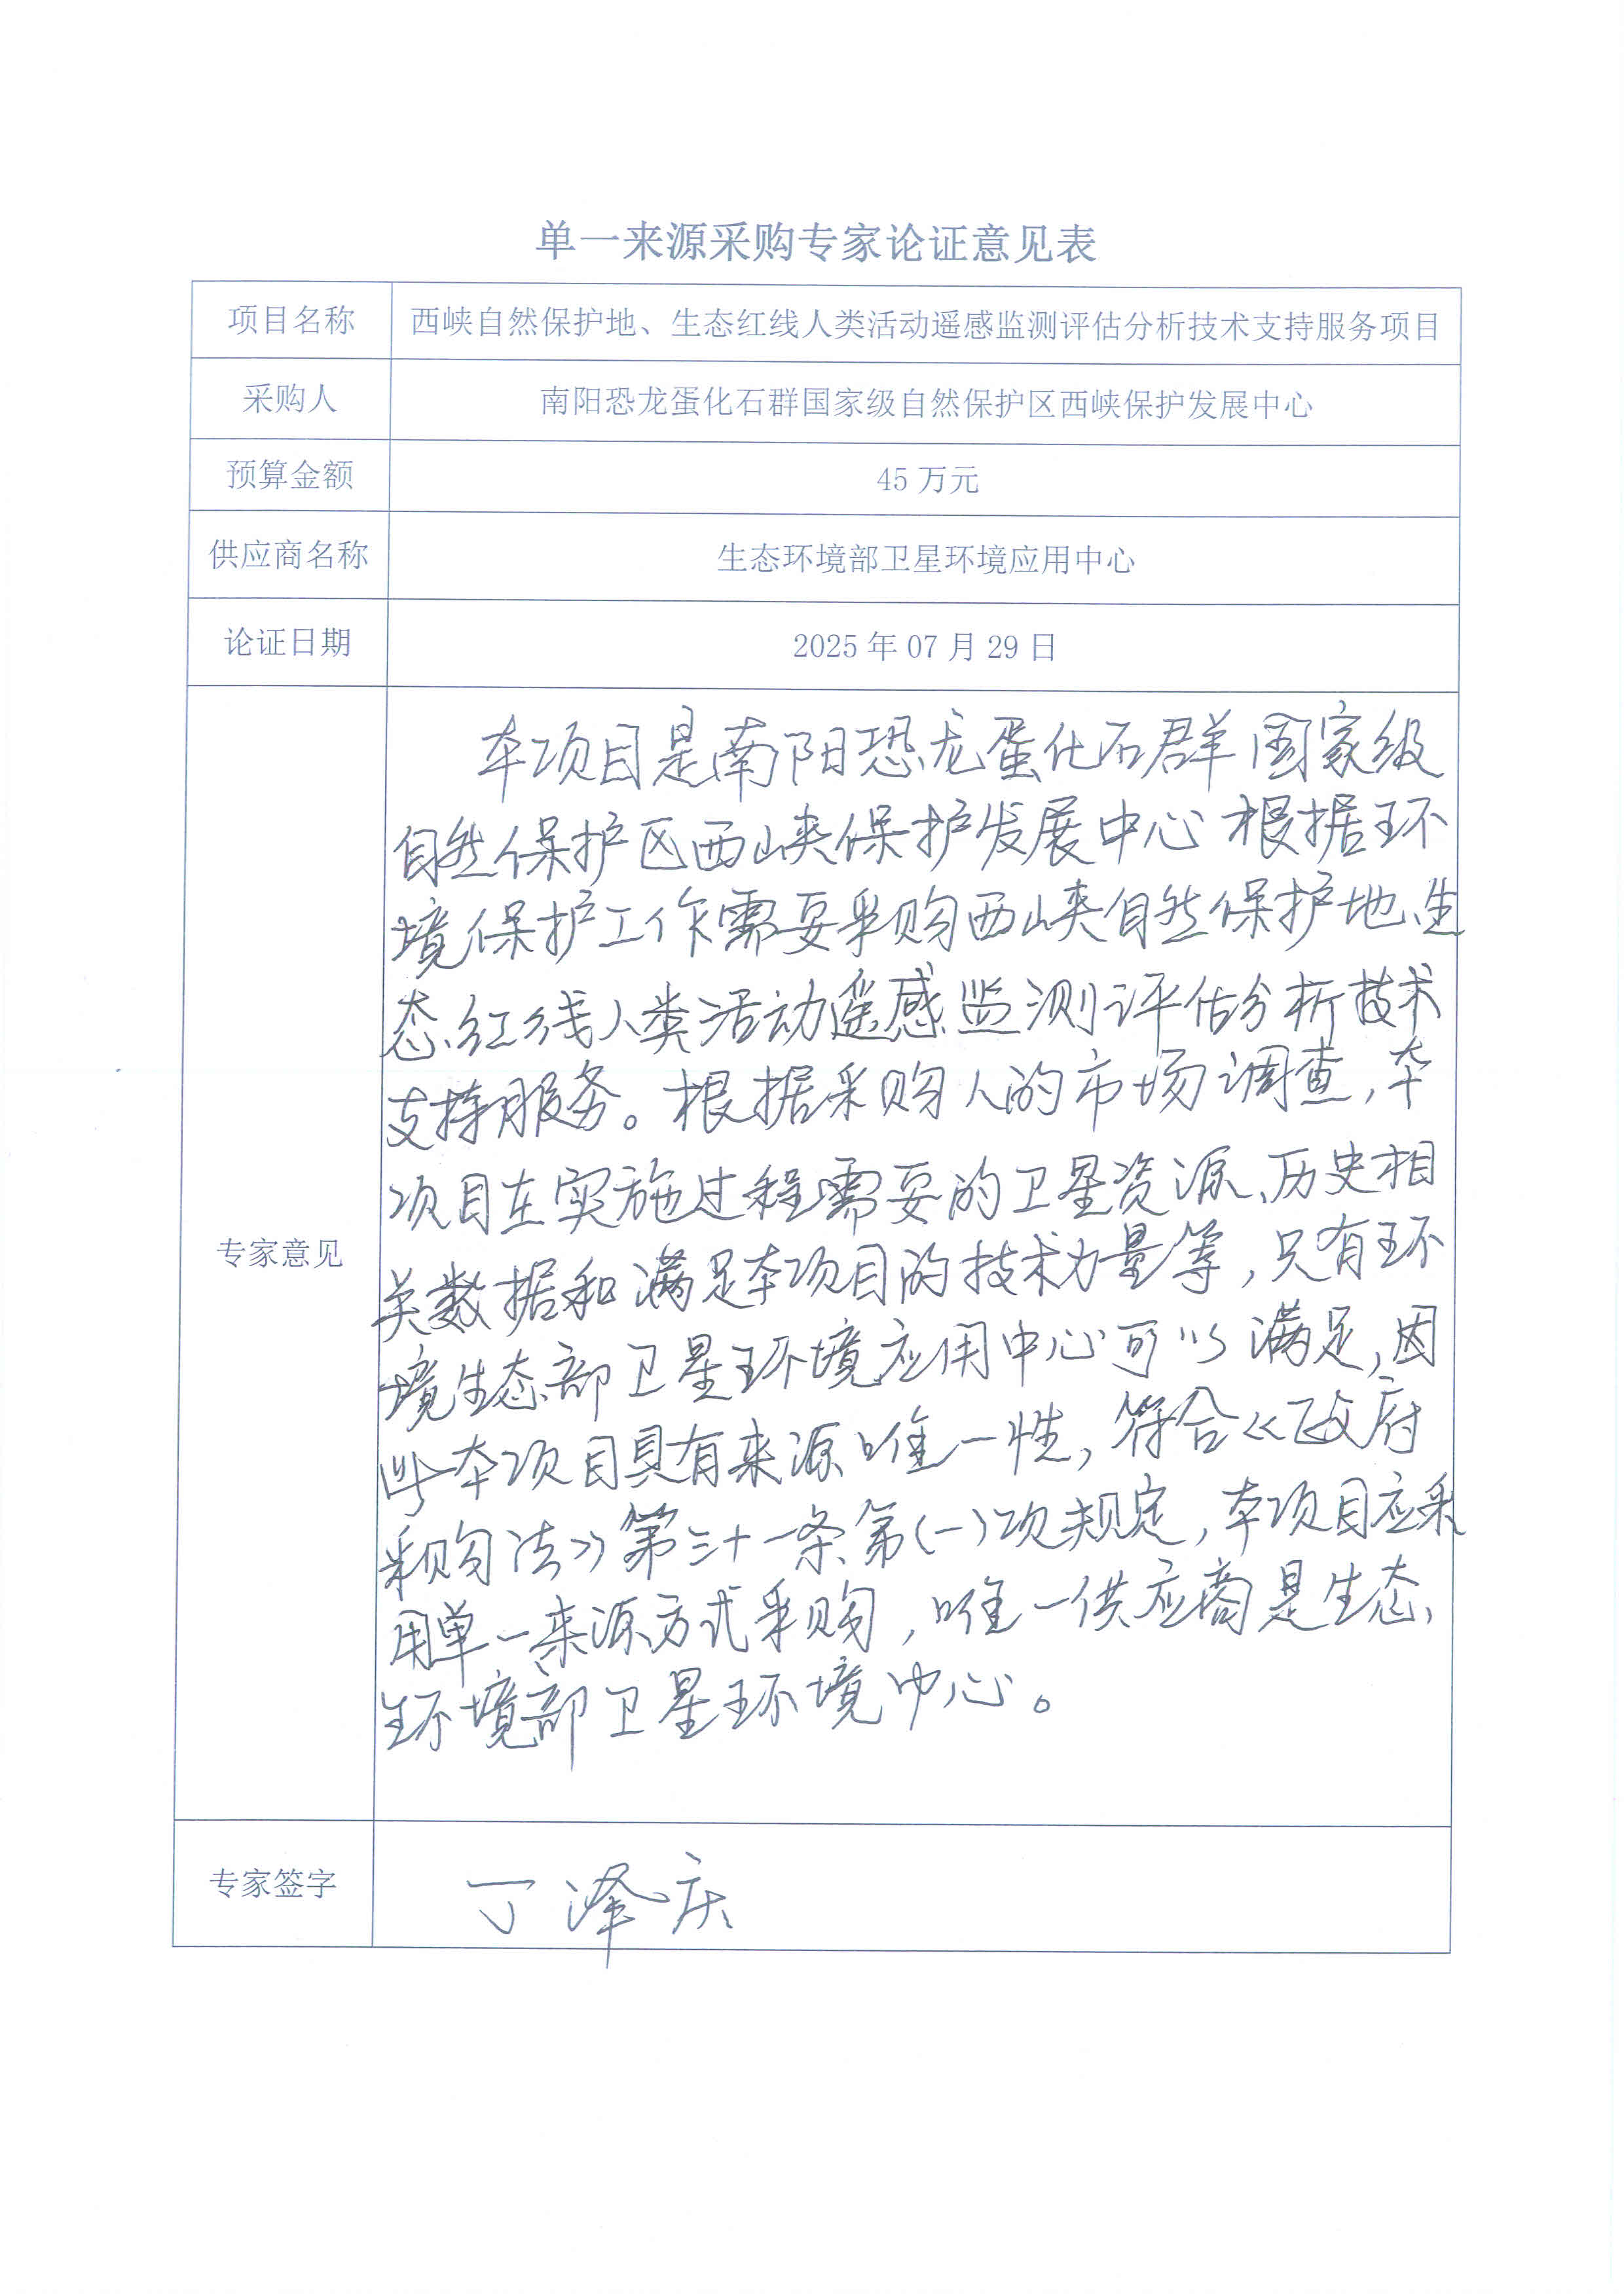 单一来源采购专家论证意见表
项目名称 西峡自然保护地、生态红线人类活动遥感监测评估分析技术支持服务项目
采购人 南阳恐龙蛋化石群国家级自然保护区西峡保护发展中心
预算金额 45 万元
供应商名称 生态环境部卫星环境应用中心
论证日期 2025 年 07 月 29 日
专家意见
本项目是南阳恐龙蛋化石群国家级
自然保护区西峡保护发展中心根据环
境保护工作需要采购西峡自然保护地、生
态红线人类活动遥感监测评估分析技术
支持服务。根据采购人的市场调查,本
项目在实施过程需要的卫星资源、历史相
关数据和满足本项目的技术力量等,只有环
境生态部卫星环境应用中心可以满足,因
此本项目具有来源唯一性,符合《政府
采购法》第三十一条第(一)项规定,本项目应采
用单一来源方式采购,唯一供应商是生态
环境部卫星环境中心。
专家签字 丁泽庆